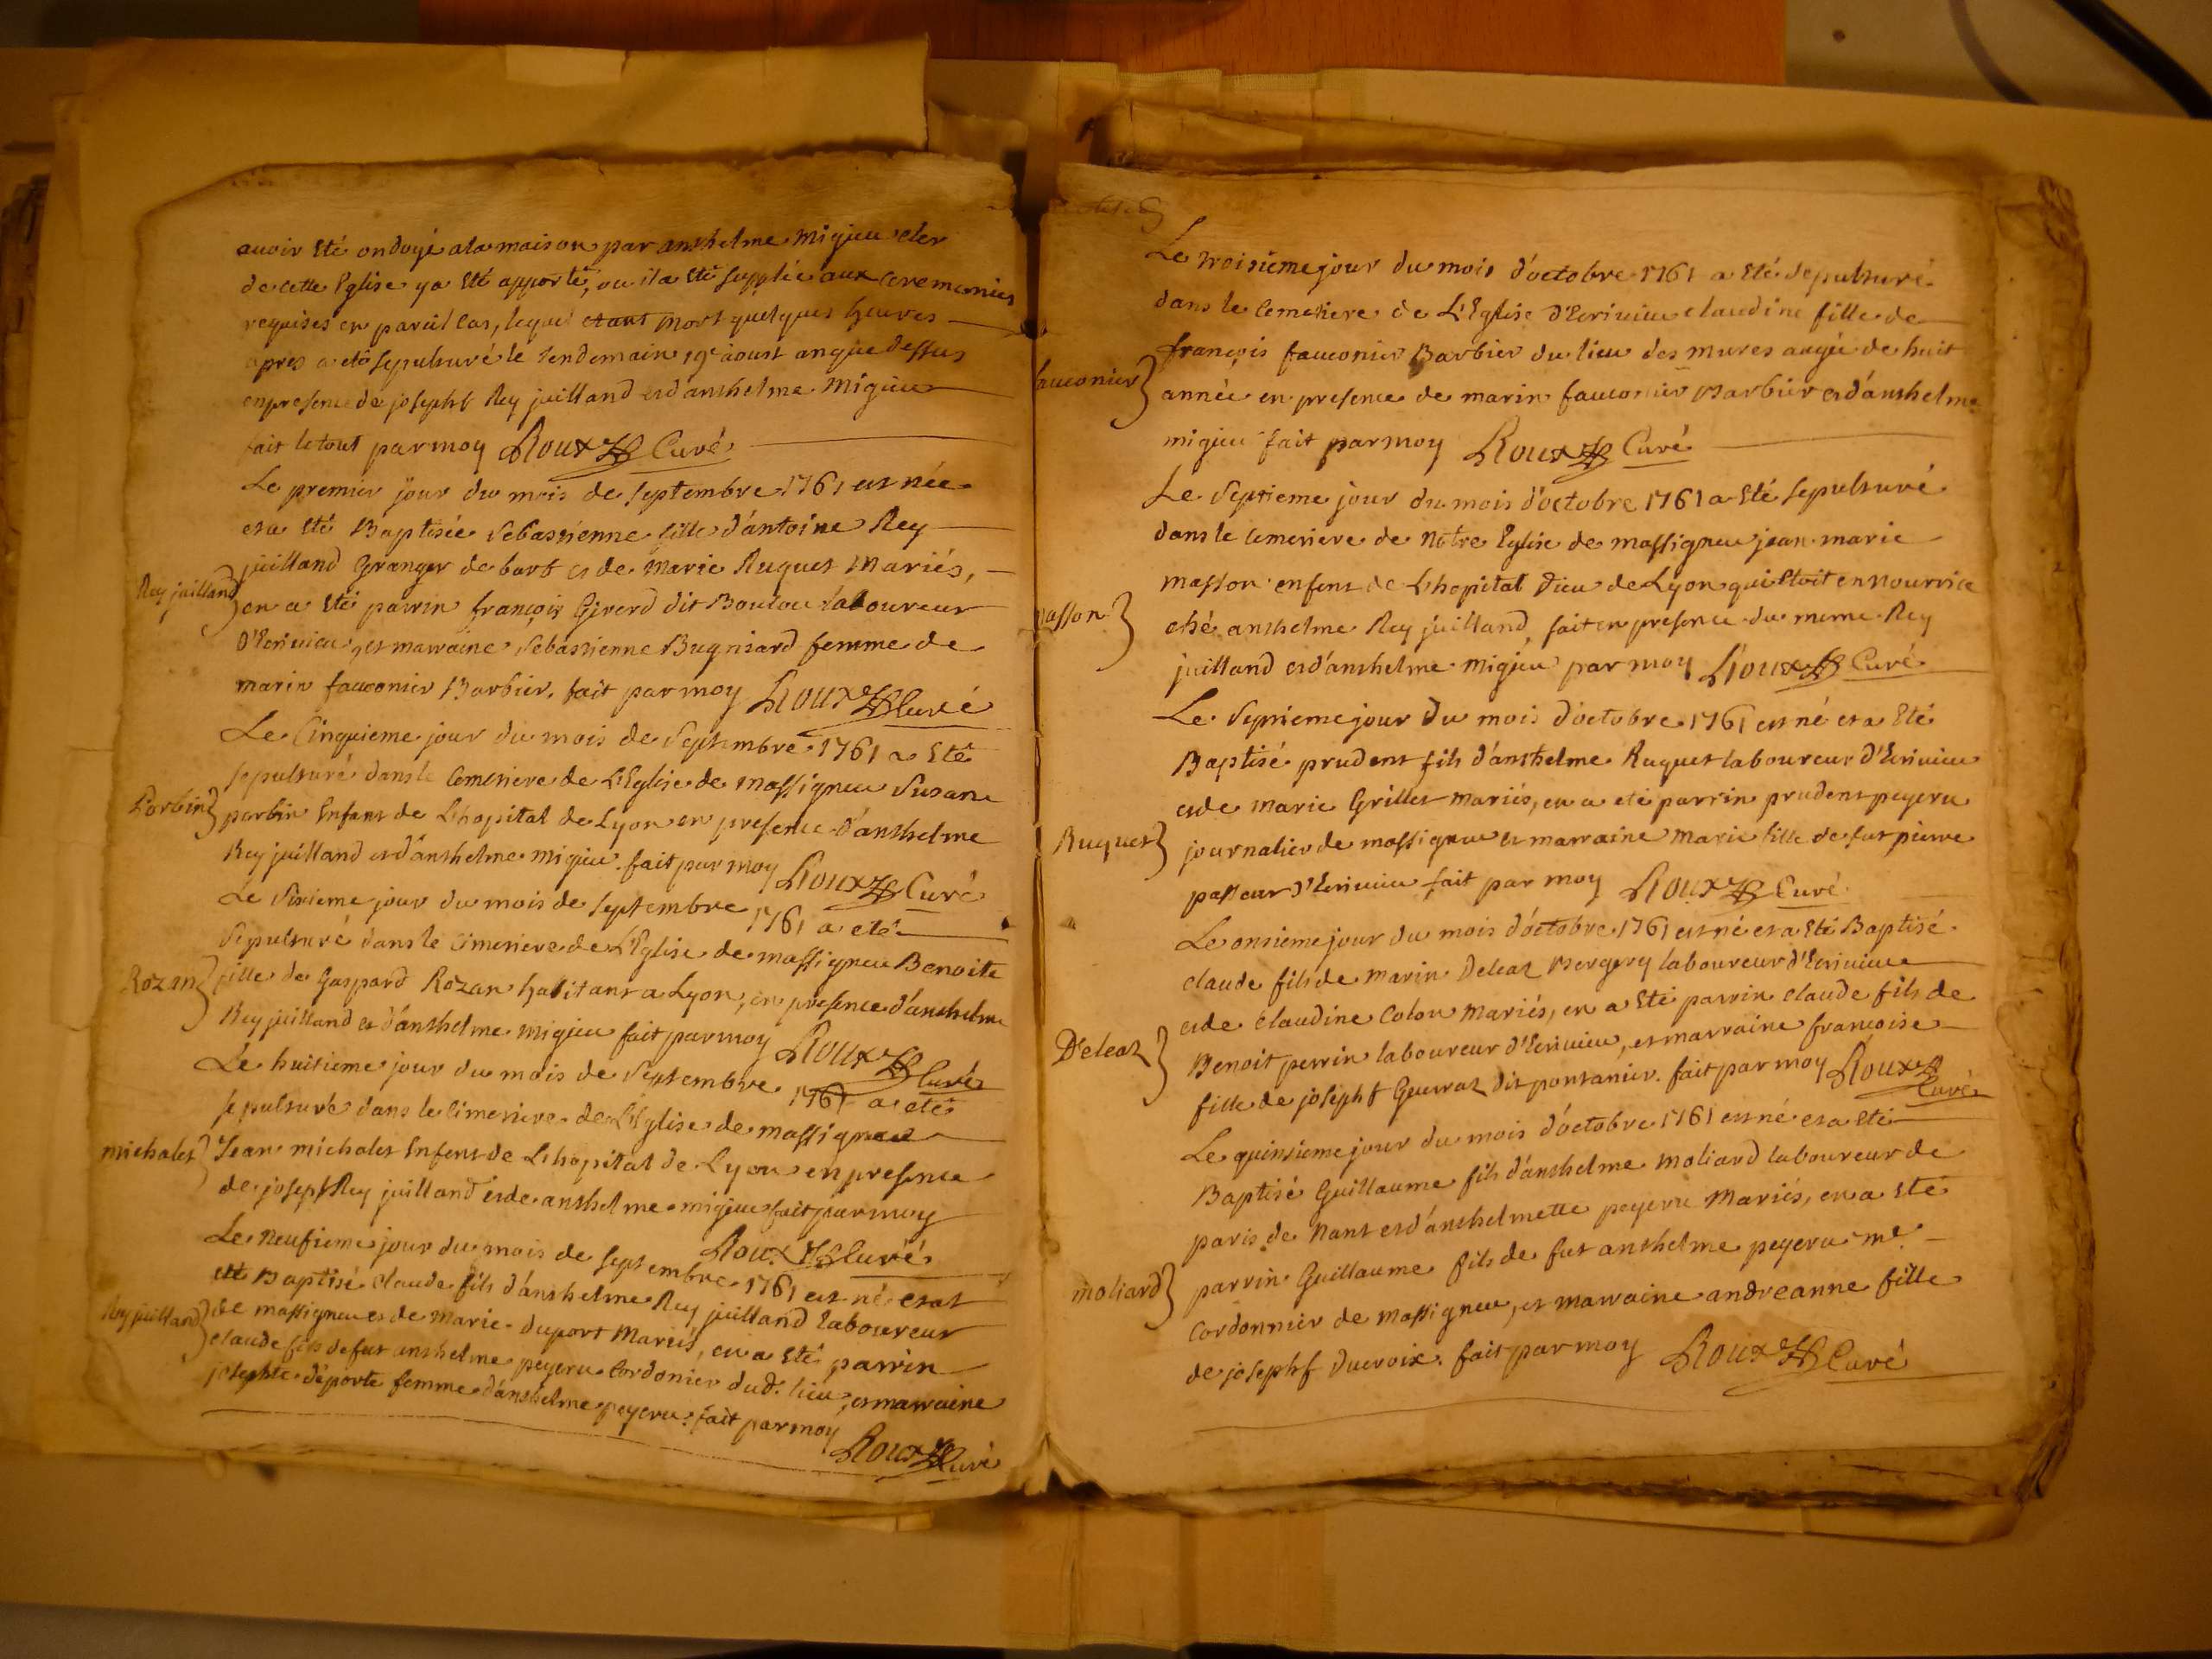 avoir Eté ondoyé ala maison par anthelme migieu clev
de cette Eglise y a Eté apporté, ou il a Eté supplée aux ceremonies
requises en pareil cas, lequel etant mort quelques heures
apres a eté sepulturé le lendemain 19e aoust an que dessus
en presence de josepht Rey juilland et d'anthelme migieu
fait le tout par moy Roux Curé
Le premier jour du mois de septembre 1761 est née
et a Eté Baptisée Sebastienne fille d'antoine Rey
juilland Granger de bart et de Marie Ruguet Mariés,
Rey juilland
en a Eté parrin françois Girerd dit Boutou laboureur
D'Ecrivieu, et marraine Sebastienne Bugnisard femme de
marin fauconier Barbier. fait par moy Roux Curé
Le Cinquieme jour du mois de Septembre 1761 a Eté
sepulturé dans le Cemetiere de L'Eglise de massigneu Susane
Porbin
porbin Enfant de L'hopital de Lyon en presence d'anthelme
Rey juilland et d'anthelme migieu. fait par moy Roux Curé
Le Sixieme jour du mois de septembre 1761 a eté
Sepulturé dans le Cimetiere de L'Eglise de massigneu Benoite
Rozan
fille de Gaspard Rozan habitant a Lyon, en presence d'anthelme
Rey juilland et d'anthelme migieu fait par moy Roux Curé
Le huitieme jour du mois de Septembre 1761 a eté
sepulturé dans le Cimetiere de L'Eglise de massigneu
michalet
Jean michalet Enfent de L'hopital de Lyon en presence
de josepht Rey juilland et de anthelme migieu fait par moy
Roux Curé
Le Neufieme jour du mois de septembre 1761 est né et at
eté Baptisé Claude fils d'anthelme Rey juilland laboureur
Rey juilland
de massigneu et de Marie duport Mariés, en a Eté parrin
claude fils de fut anthelme peyeru Cordonier dud. lieu, et marraine
josephte déporte femme d'anthelme peyeru. fait par moy
Roux Curé
Le troisieme jour du mois d'octobre 1761 a Eté Sepulturé
dans le Cemetiere de L'Eglise D'Ecrivieu claudine fille de
françois fauconier Barbier du lieu des mures augée de huit
fauconier
année en presence de marin fauconier Barbier et d'anthelme
migieu fait par moy Roux Curé
Le Septieme jour du mois d'octobre 1761 a Eté sepulturé
dans le Cemetiere de Notre Eglise de massigneu jean marie
masson enfent de L'hopital Dieu de Lyon qui Etoit en nourrice
masson
ché anthelme Rey juilland, fait en presence du meme Rey
juilland et d'anthelme migieu par moy Roux Curé
Le Septieme jour Du mois d'octobre 1761 est né et a Eté
Baptisé prudent fils d'anthelme Ruguet laboureur d'Ecrivieu
et de marie Grillet mariés, en a eté parrin prudent peyeru
Ruguet
journalier de massigneu et marraine marie fille de fut pierre
passeur d'Ecrivieu fait par moy Roux Curé
Le onsieme jour du mois d'octobre 1761 est né et a Eté Baptisé
claude fils de marin Deleaz Mergery laboureur d'Ecrivieu
et de claudine Colon mariés, en a Eté parrin claude fils de
Deleaz
Benoit perrin laboureur d'Ecrivieu, et marraine francoise
fille de josepht Guerraz dit pontanier. fait par moy Roux
Curé
Le quinsieme jour du mois d'octobre 1761 est né et a Eté
Baptisé Guillaume fils d'anthelme moliard laboureur de
paris de Nant et d'anthelmette peyeru Mariés, en a Eté
parrin Guillaume fils de fut anthelme peyeru me
moliard
Cordonnier de massigneu, et marraine andreanne fille
de josephf Ducroix. fait par moy Roux Curé